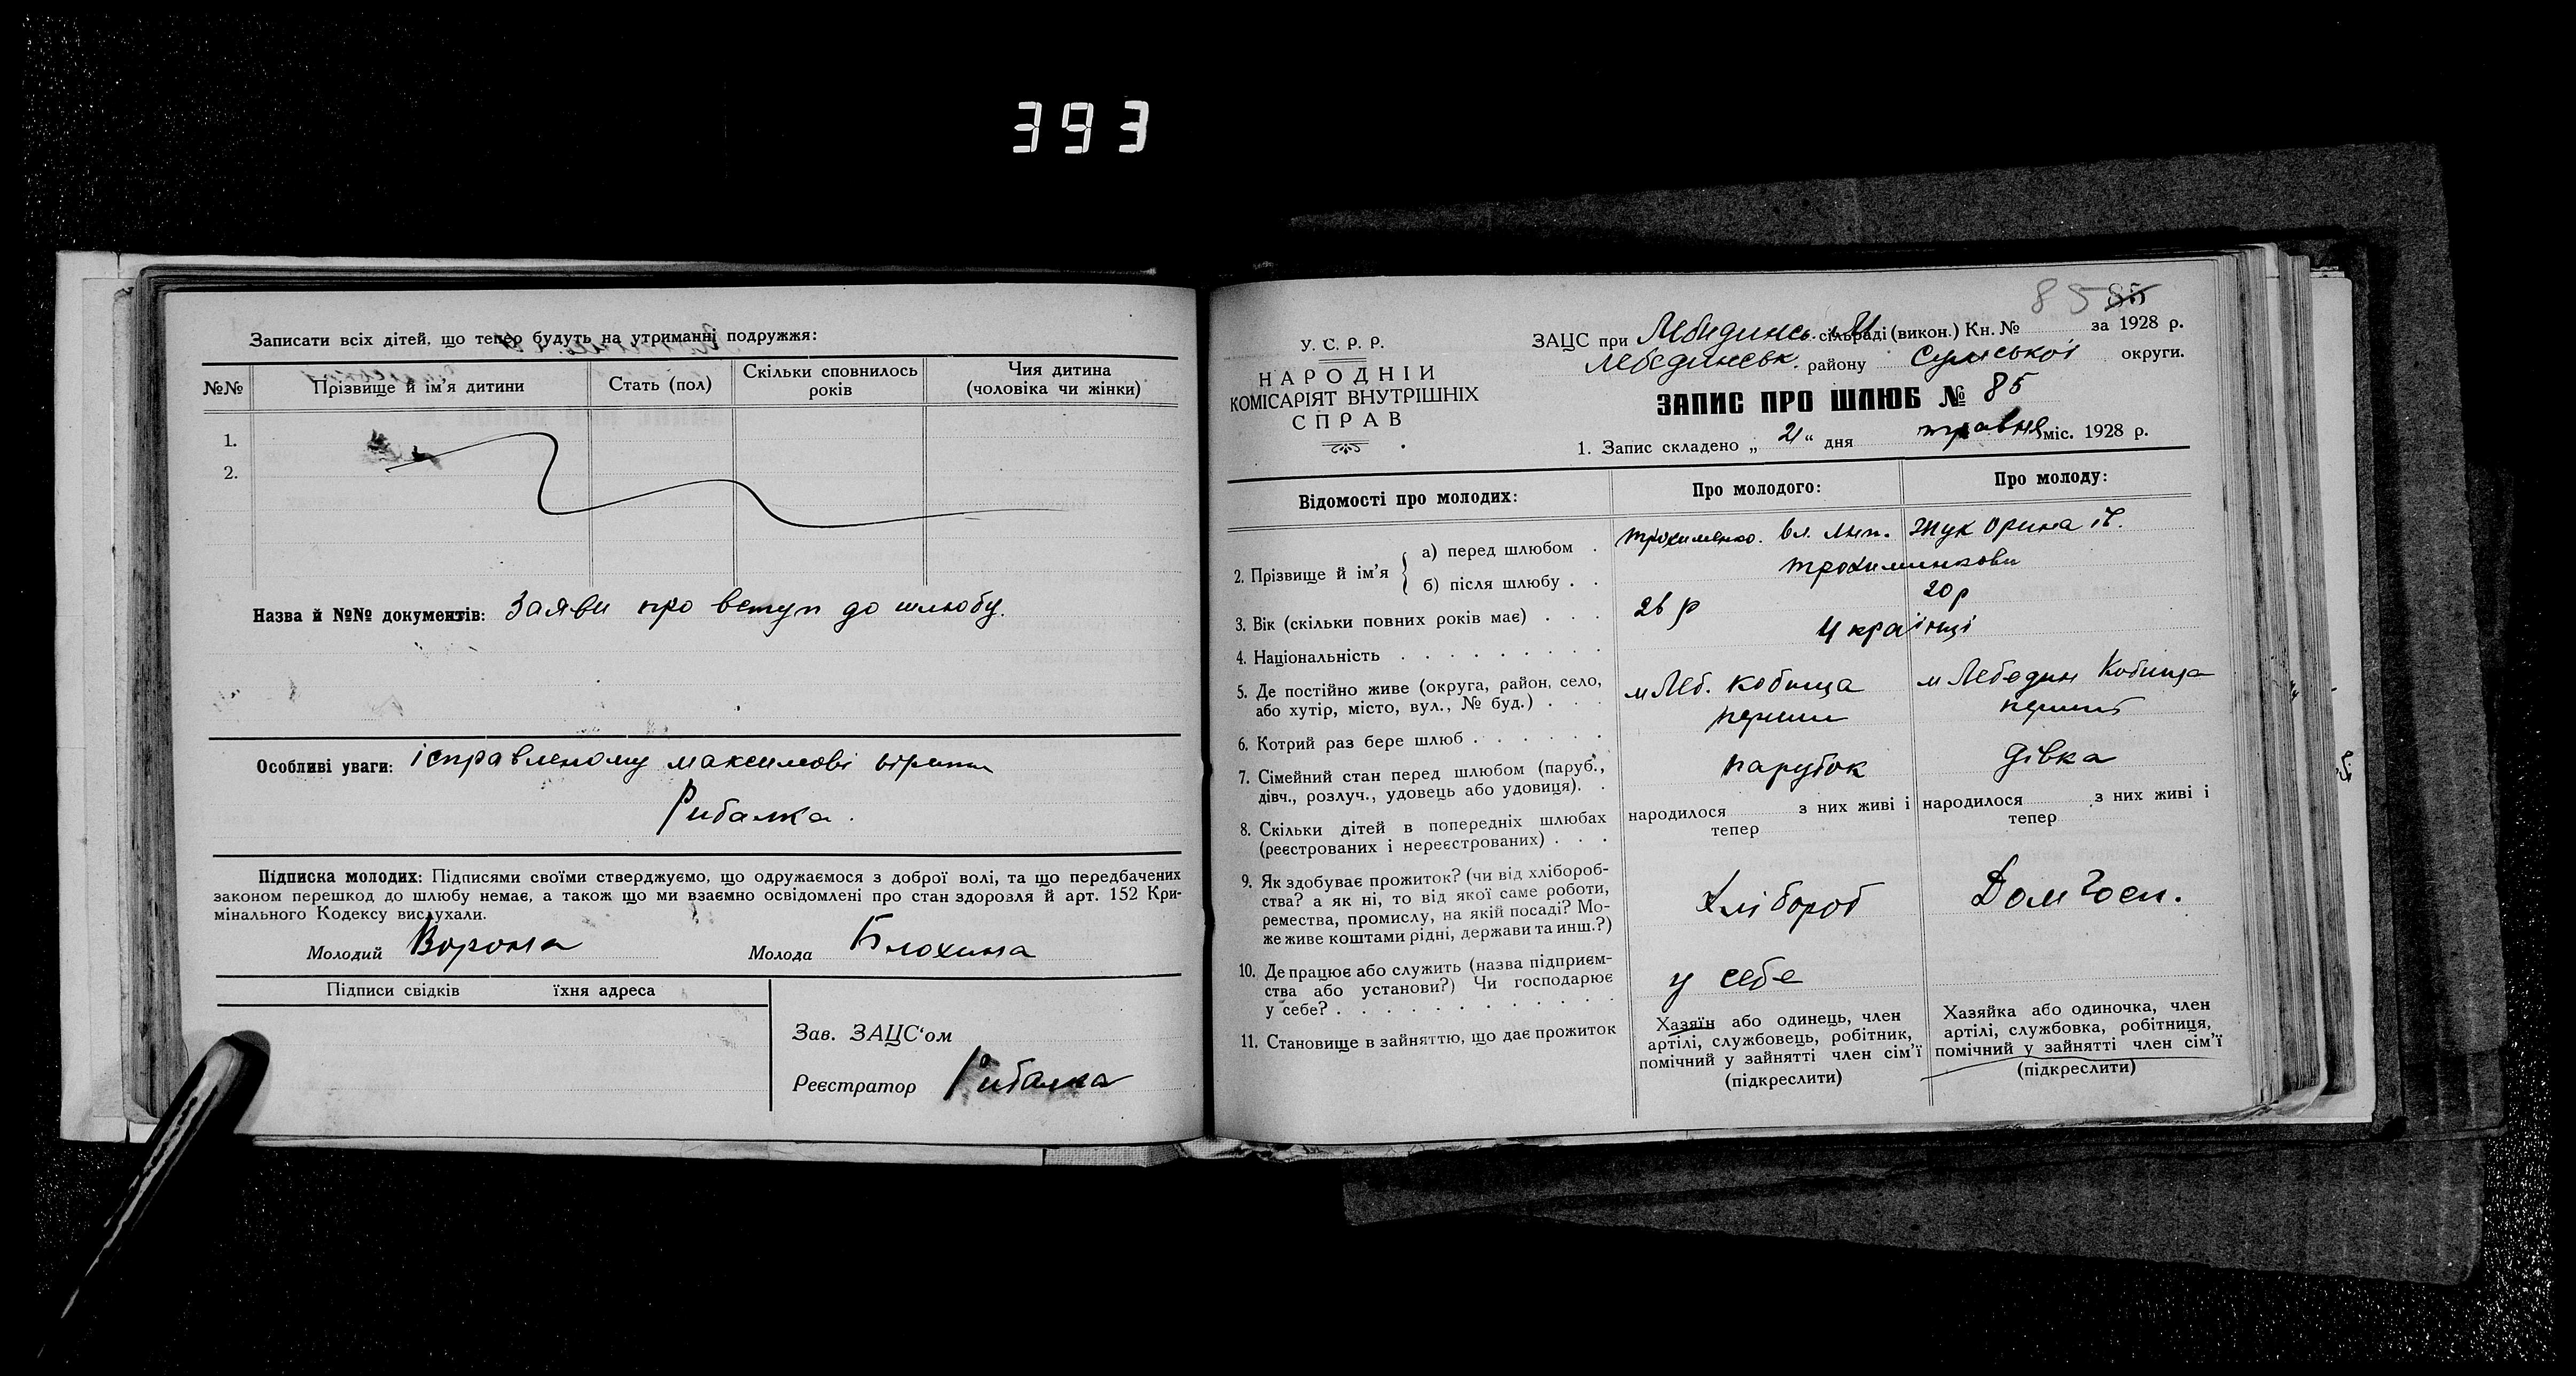 393
Записати всіх дітей, що тепер будуть на утриманні подружжя:
№№ Прізвище й ім'я дитини Стать (пол) Скільки сповнилось років Чия дитина (чоловіка чи жінки)
1.
2.
Назва й №№ документів: Заяви про вступ до шлюбу.
Особливі уваги: ісправленому максимові вірити
Рибалка.
Підписка молодих: Підписями своїми стверджуємо, що одружаємося з доброї волі, та що передбачених
законом перешкод до шлюбу немає, а також що ми взаємно освідомлені про стан здоровля й арт. 152 Кри-
мінального Кодексу вислухали.
Молодий Ворона Молода Блохина
Підписи свідків їхня адреса
Зав. ЗАЦС'ом
Реєстратор Рибалка
85 85
У. С. Р. Р.
НАРОДНІЙ
КОМІСАРІЯТ ВНУТРІШНІХ
СПРАВ
ЗАЦС при Лебидинсь. сільраді (викон.) Кн. № за 1928 р.
Лебединськ. району Сумської округи.
ЗАПИС ПРО ШЛЮБ № 85
1. Запис складено „21“ дня травня міс. 1928 р.
Відомості про молодих: Про молодого: Про молоду:
2. Прізвище й ім'я
а) перед шлюбом . Трохименко. Вл. Жук Орина
б) після шлюбу . . Трохименкови
3. Вік (скільки повних років має) . . . 26 р 20 р
4. Національність . . . . . . . . . Українці
5. Де постійно живе (округа, район, село,
або хутір, місто, вул., № буд.) . . . м Леб. Кобища м Лебедин Кобища
6. Котрий раз бере шлюб . . . . . . перший перший
7. Сімейний стан перед шлюбом (паруб.,
дівч., розлуч., удовець або удовиця). . парубок дівка
8. Скільки дітей в попередніх шлюбах
(реєстрованих і нереєстрованих) . . .
народилося з них живі і
тепер
народилося з них живі і
тепер
9. Як здобуває прожиток? (чи від хлібороб-
ства? а як ні, то від якої саме роботи,
ремества, промислу, на якій посаді? Мо-
же живе коштами рідні, держави та инш.?)
Хлібороб Дом Госп.
10. Де працює або служить (назва підприєм-
ства або установи?) Чи господарює
у себе? . . . . . . . . . . . у себе
11. Становище в зайняттю, що дає прожиток
Хазяїн або одинець, член
артілі, службовець, робітник,
помічний у зайнятті член сім'ї
(підкреслити)
Хазяйка або одиночка, член
артілі, службовка, робітниця,
помічний у зайнятті член сім'ї
(підкреслити)